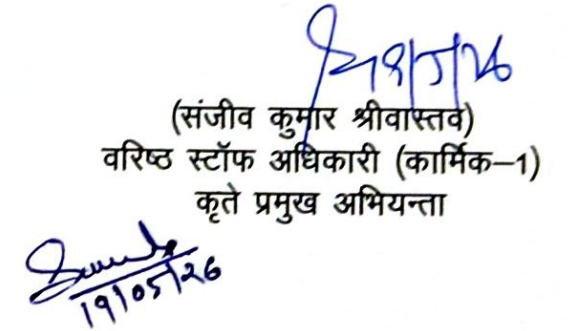 19/5/26
(संजीव कुमार श्रीवास्तव)
वरिष्ठ स्टॉफ अधिकारी (कार्मिक–1)
कृते प्रमुख अभियन्ता
19/05/26